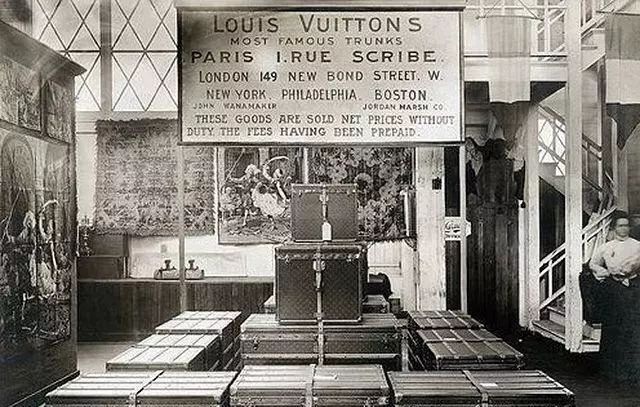 LOUIS VUITTONS
MOST FAMOUS TRUNKS
PARIS 1. RUE SCRIBE.
LONDON 149 NEW BOND STREET. W.
NEW YORK. PHILADELPHIA. BOSTON.
JOHN WANAMAKER JORDAN MARSH CO.
THESE GOODS ARE SOLD NET PRICES WITHOUT
DUTY THE FEES HAVING BEEN PREPAID.